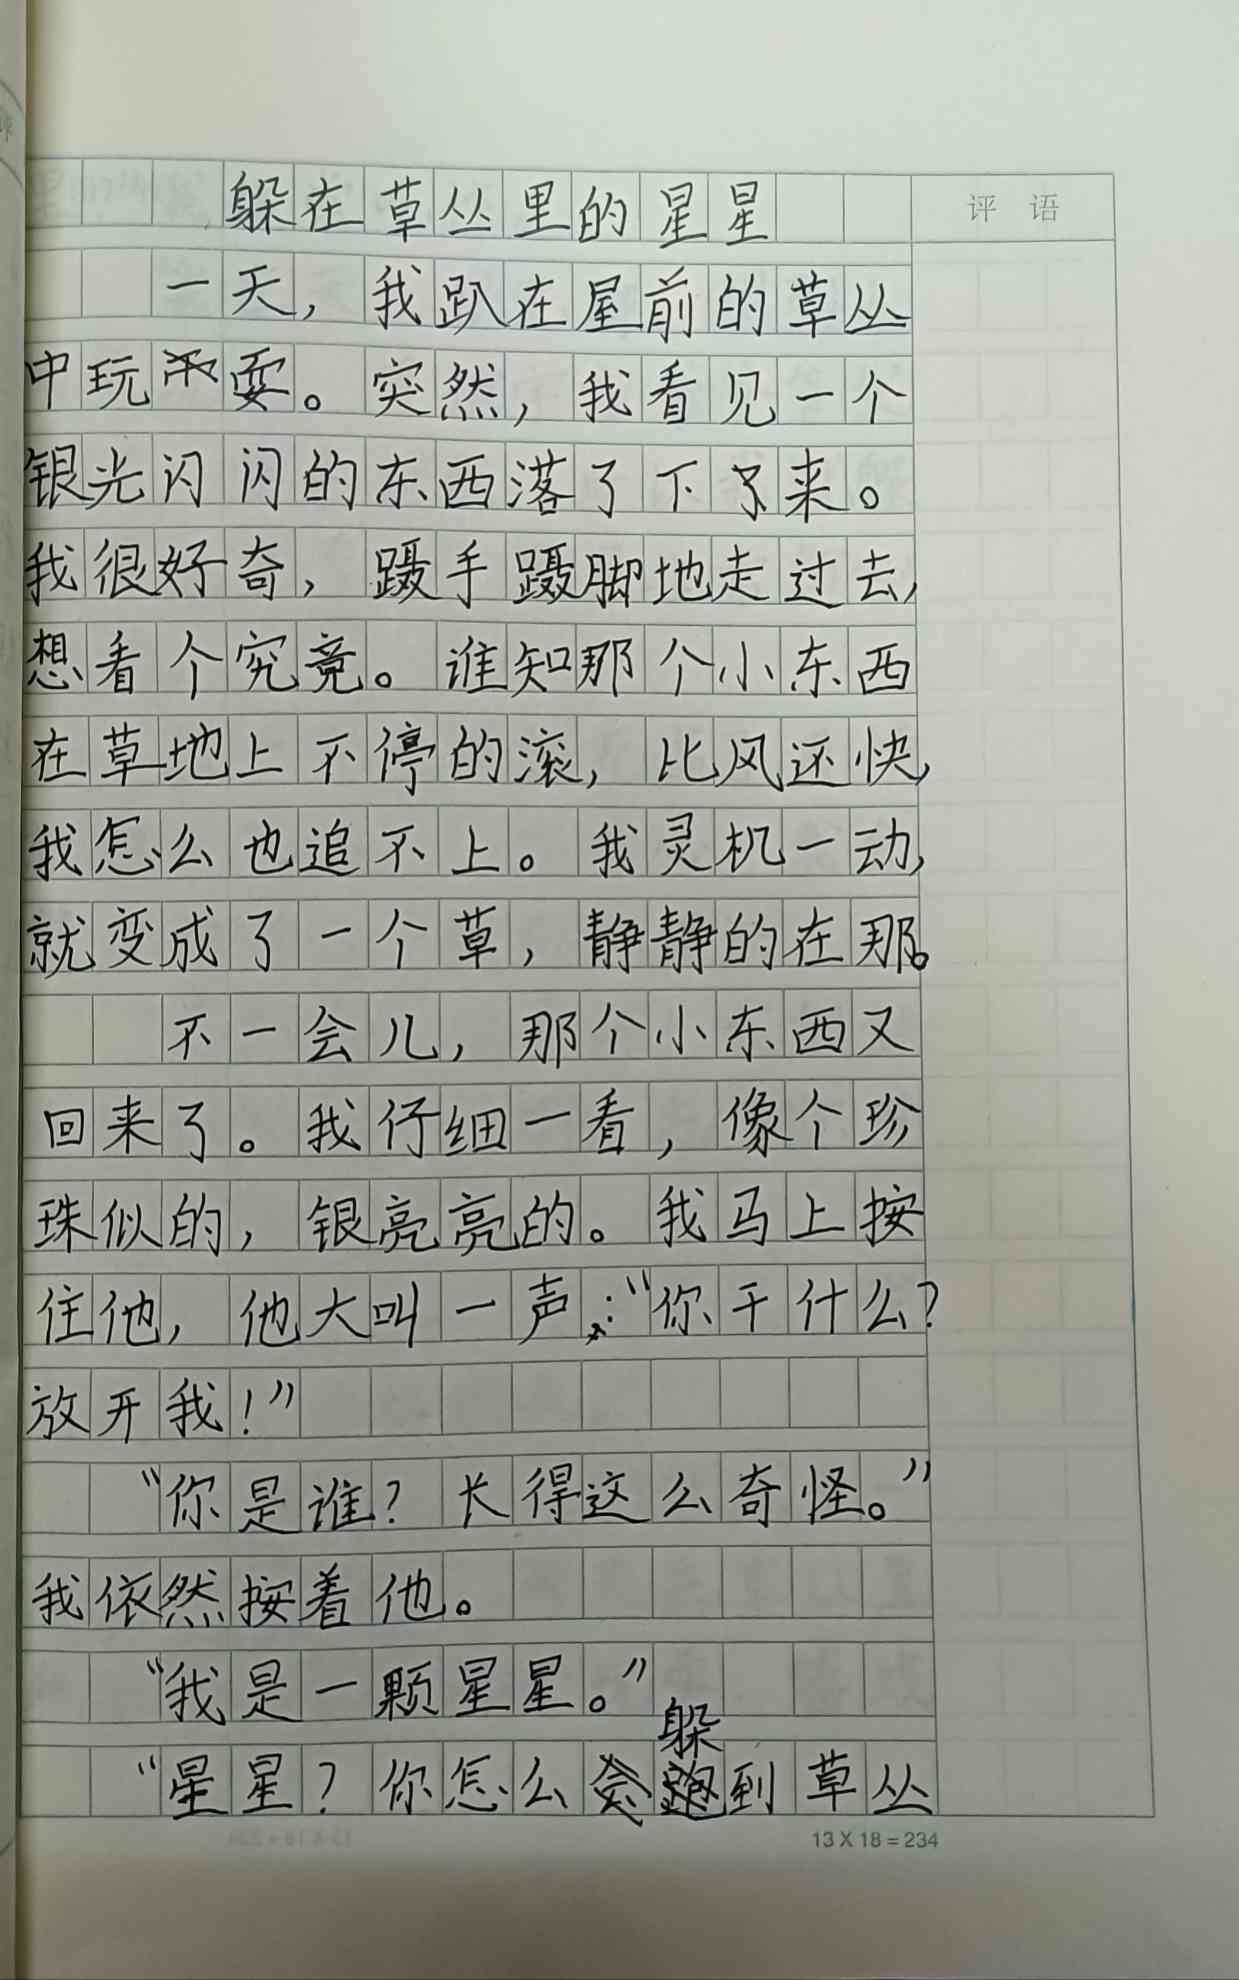 躲在草丛里的星星
评语
一天，我趴在屋前的草丛
中玩耍。突然，我看见一个
银光闪闪的东西落了下来。
我很好奇，蹑手蹑脚地走过去，
想看个究竟。谁知那个小东西
在草地上不停的滚，比风还快，
我怎么也追不上。我灵机一动，
就变成了一个草，静静的在那。
不一会儿，那个小东西又
回来了。我仔细一看，像个珍
珠似的，银亮亮的。我马上按
住他，他大叫一声：“你干什么？
放开我！”
“你是谁？长得这么奇怪。”
我依然按着他。
“我是一颗星星。”
“星星？你怎么躲到草丛
13 X 18 = 234